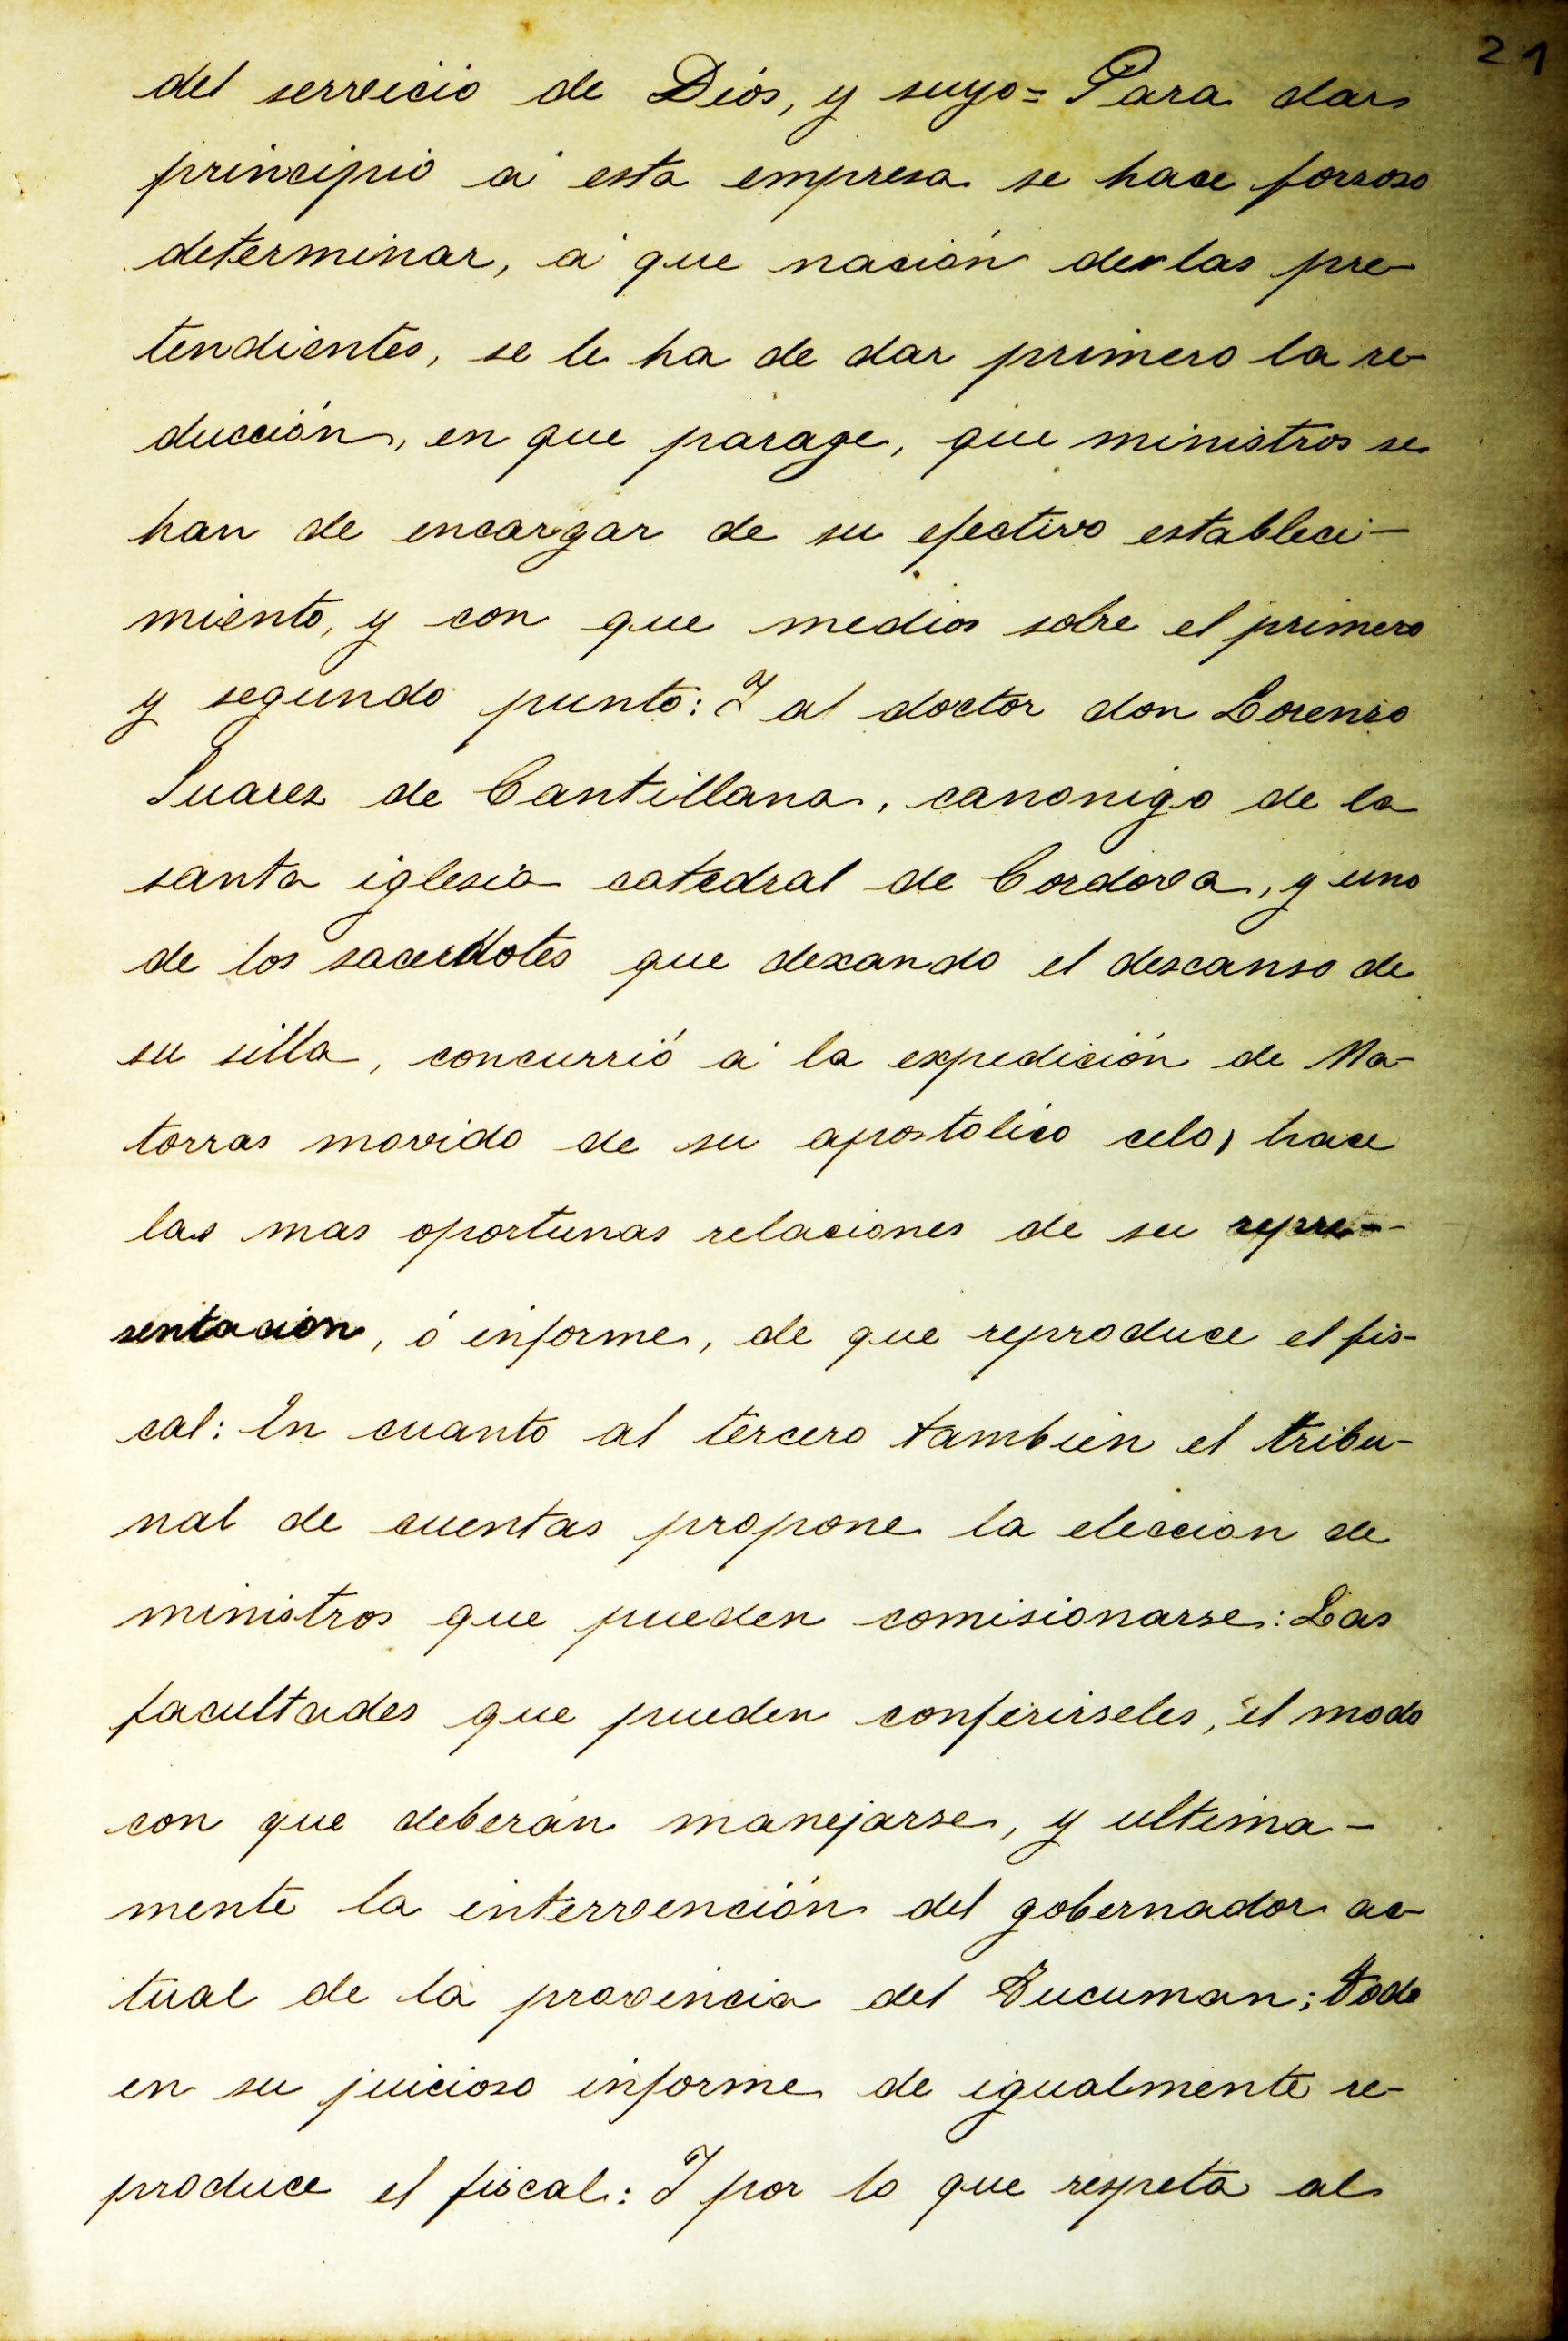 21
del servicio de Dios, y suyo = Para dar
principio á esta empresa se hace forzoso
determinar, á que nación de las pre-
tendientes, se le ha de dar primero la re-
ducción, en que parage, que ministros se
han de encargar de su efectivo estableci-
miento, y con que medios sobre el primero
y segundo punto: I al doctor don Lorenzo
Suarez de Cantillana, canonigo de la
santa iglesia catedral de Cordova, y uno
de los sacerdotes que dexando el descanso de
su silla, concurrió á la expedición de Ma-
torras movido de su apostolico celo, hace
las mas oportunas relaciones de su repre-
sentacion, ó informe, de que reproduce el fis-
cal: En cuanto al tercero tambien el tribu-
nal de cuentas propone la eleccion de
ministros que pueden comisionarse: Las
facultades que pueden conferirseles, el modo
con que deberán manejarse, y ultima-
mente la intervención del gobernador ac-
tual de la provincia del Tucuman; todo
en su juicioso informe de igualmente re-
produce el fiscal: I por lo que respeta al